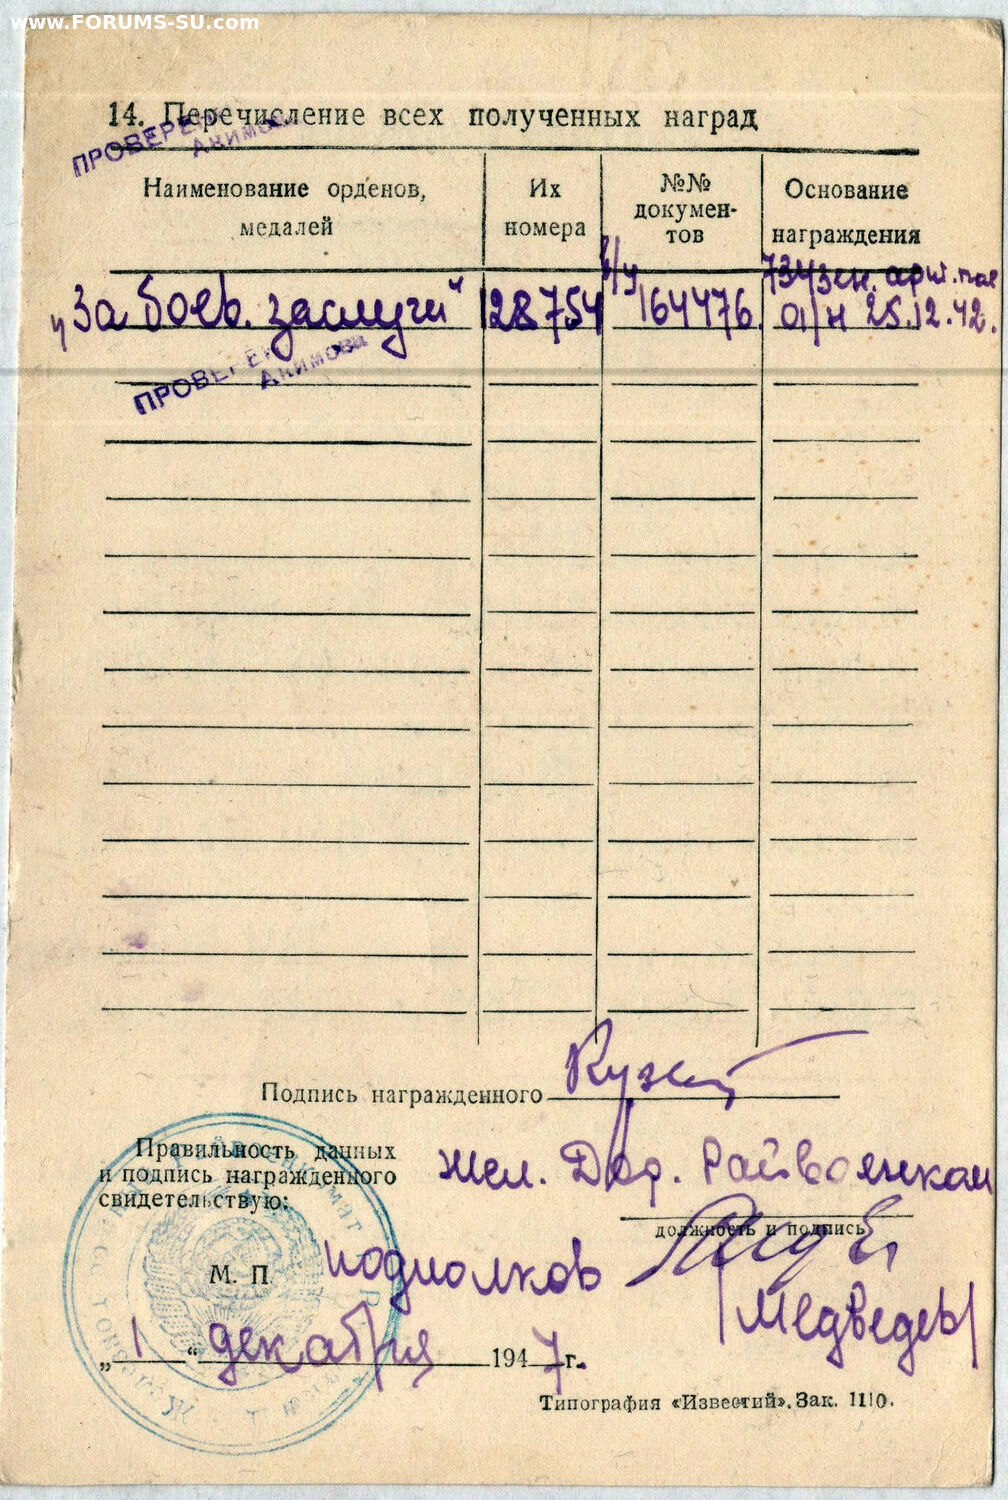 www.FORUMS-SU.com
14. Перечисление всех полученных наград
ПРОВЕРЕН
Акимова
Наименование орденов, медалей
Их номера
№№ докумен-
тов
Основание награждения
„За боев. заслуги“ 128754 в/у 164476. 734 зен. арт. пол
от 25.12.42.
ПРОВЕРЕН
Акимова
Подпись награжденного
Правильность данных
и подпись награжденного
свидетельствую:
Жел. Дор. Райвоенком
должность и подпись
М. П.
подполков
/Медведев/
„ 1 “ декабря 1947 г.
Типография «Известий». Зак. 1110.